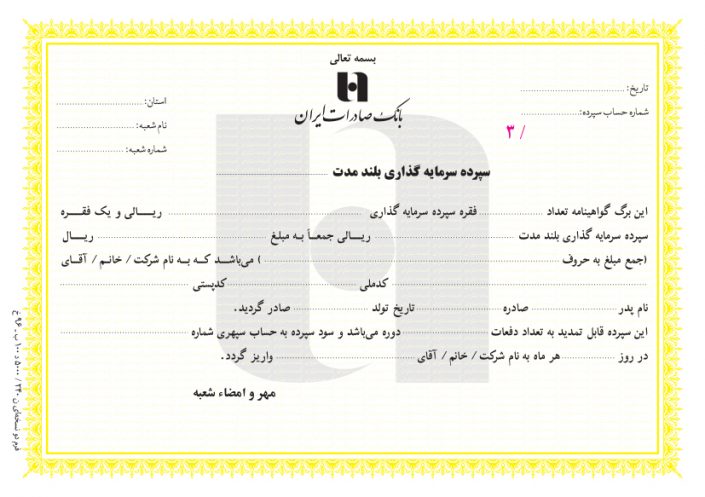 بسمه تعالی
بانک صادرات ایران
تاریخ: ........................
شماره حساب سپرده: ........................
۳ /
استان: ........................
نام شعبه: ........................
شماره شعبه: ........................
سپرده سرمایه گذاری بلند مدت ........................
این برگ گواهینامه تعداد ........................ فقره سپرده سرمایه گذاری ........................ ریـــالی و یک فقـــره
سپرده سرمایه گذاری بلند مدت ........................ ریـــالی جمعـاً بـه مبلغ ........................ ریـــال
(جمع مبلغ به حروف ........................ ) می‌باشــد کــه بــه نام شرکت / خانـم / آقـای
........................ کدملی ........................ کدپستی ........................
نام پدر ........................ صادره ........................ تاریخ تولد ........................ صادر گردید.
این سپرده قابل تمدید به تعداد دفعات ........................ دوره می‌باشد و سود سپرده به حساب سپهری شماره ........................
در روز ........................ هر ماه به نام شرکت / خانم / آقای ........................ واریز گردد.
مهر و امضاء شعبه